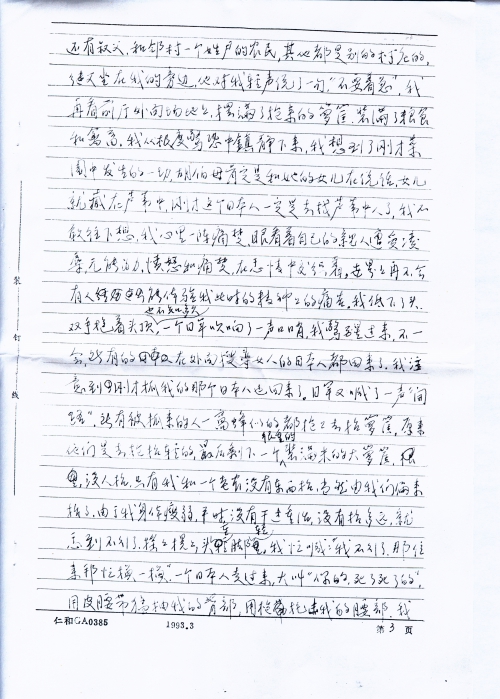 还有叔父，和邻村一个姓卢的农民，其他都是别的村庄的，
坐在我的旁边，他对我轻声说了一句，"不要着急"，我
再看前厅外面场地上，摆满了抢来的箩筐，装满了粮食
和禽畜。我从极度惊恐中镇静下来，我想到了刚才菜
园中发生的一切，胡伯母肯定是和她的女儿在说话，女儿
就藏在芦苇中，刚才这个日本人一定是去找芦苇中人了，我不
敢往下想，我心里一阵痛楚，眼看着自己的亲人遭受凌
辱无能为力，愤怒和痛楚，在悲情中交织着，世界上再不会
有人能体验我此时的精神上的痛苦，我低下了头
双手抱着头顶，一个日军吹响了一声口哨，我惊醒过来，不一
会，所有的在外面搜寻女人的日本人都回来了。我注
意到刚才抓我的那个日本人也回来了。日军又喊了一声"开
路"，所有被抓来的人一窝蜂似的都抢上去抬箩筐，原来
他们是去抢抬轻的，最后剩下一个装满米的大箩筐，很
重，没人抬，只有我和一个老农没有东西抬，当然由我们俩来
抬了，由于我身体瘦弱，平时没有干过重活，没有抬多远，就
忍受不了，我忙喊："我不行了，那位
来帮忙换一换"，一个日本人走过来，大叫"你的，死了死了的"，
用皮腰带猛抽我的背部，用枪托击我的腰部，我
仁和GA0385 1993.3 第 3 页